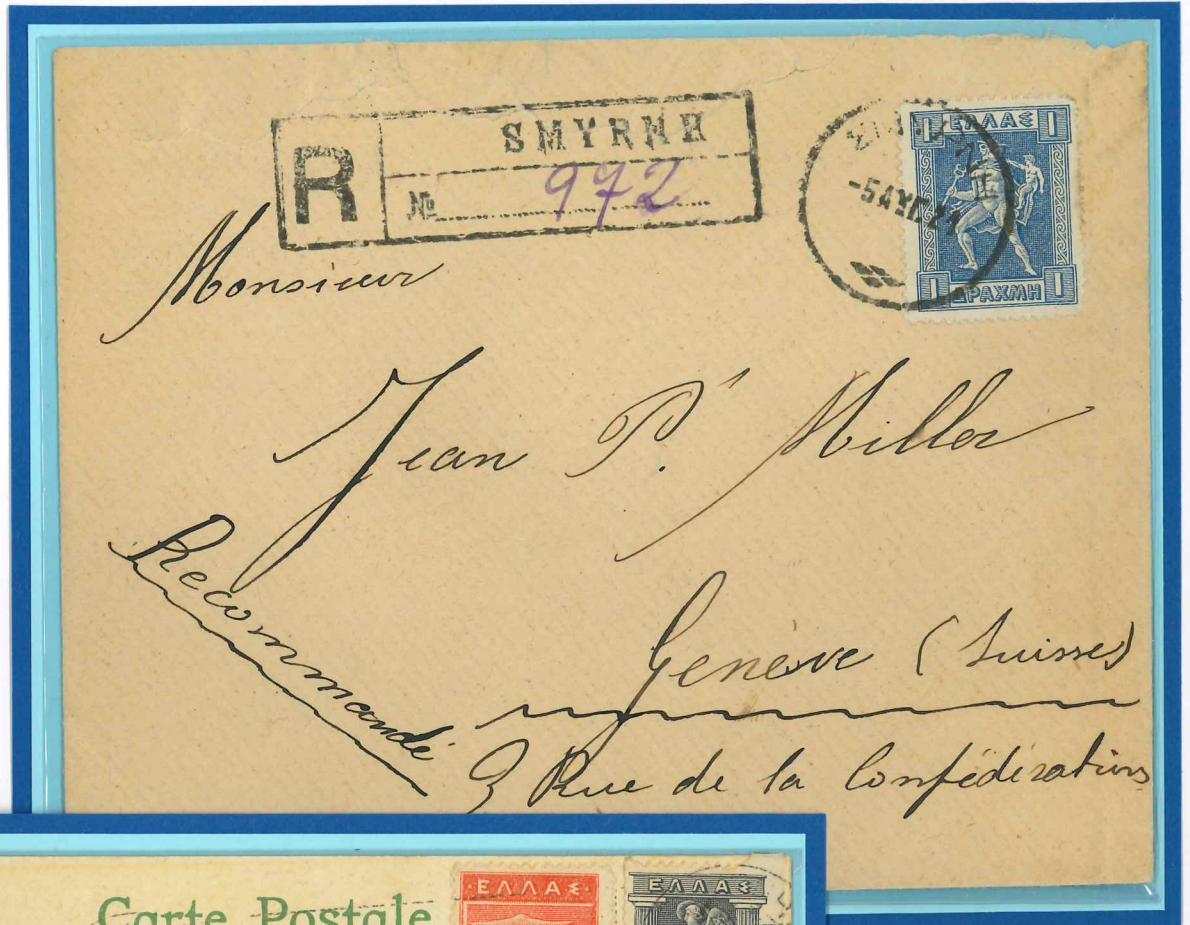 R
SMYRNH
№ 972
ΣΜΥΡΝΗ
-5 ΑΥΓ 21
1 ΕΛΛΑΣ 1
1 ΔΡΑΧΜΗ 1
Monsieur
Jean P. Miller
Recommandé
Genève (Suisse)
3 Rue de la Confédération
Carte Postale
ΕΛΛΑΣ
ΕΛΛΑΣ